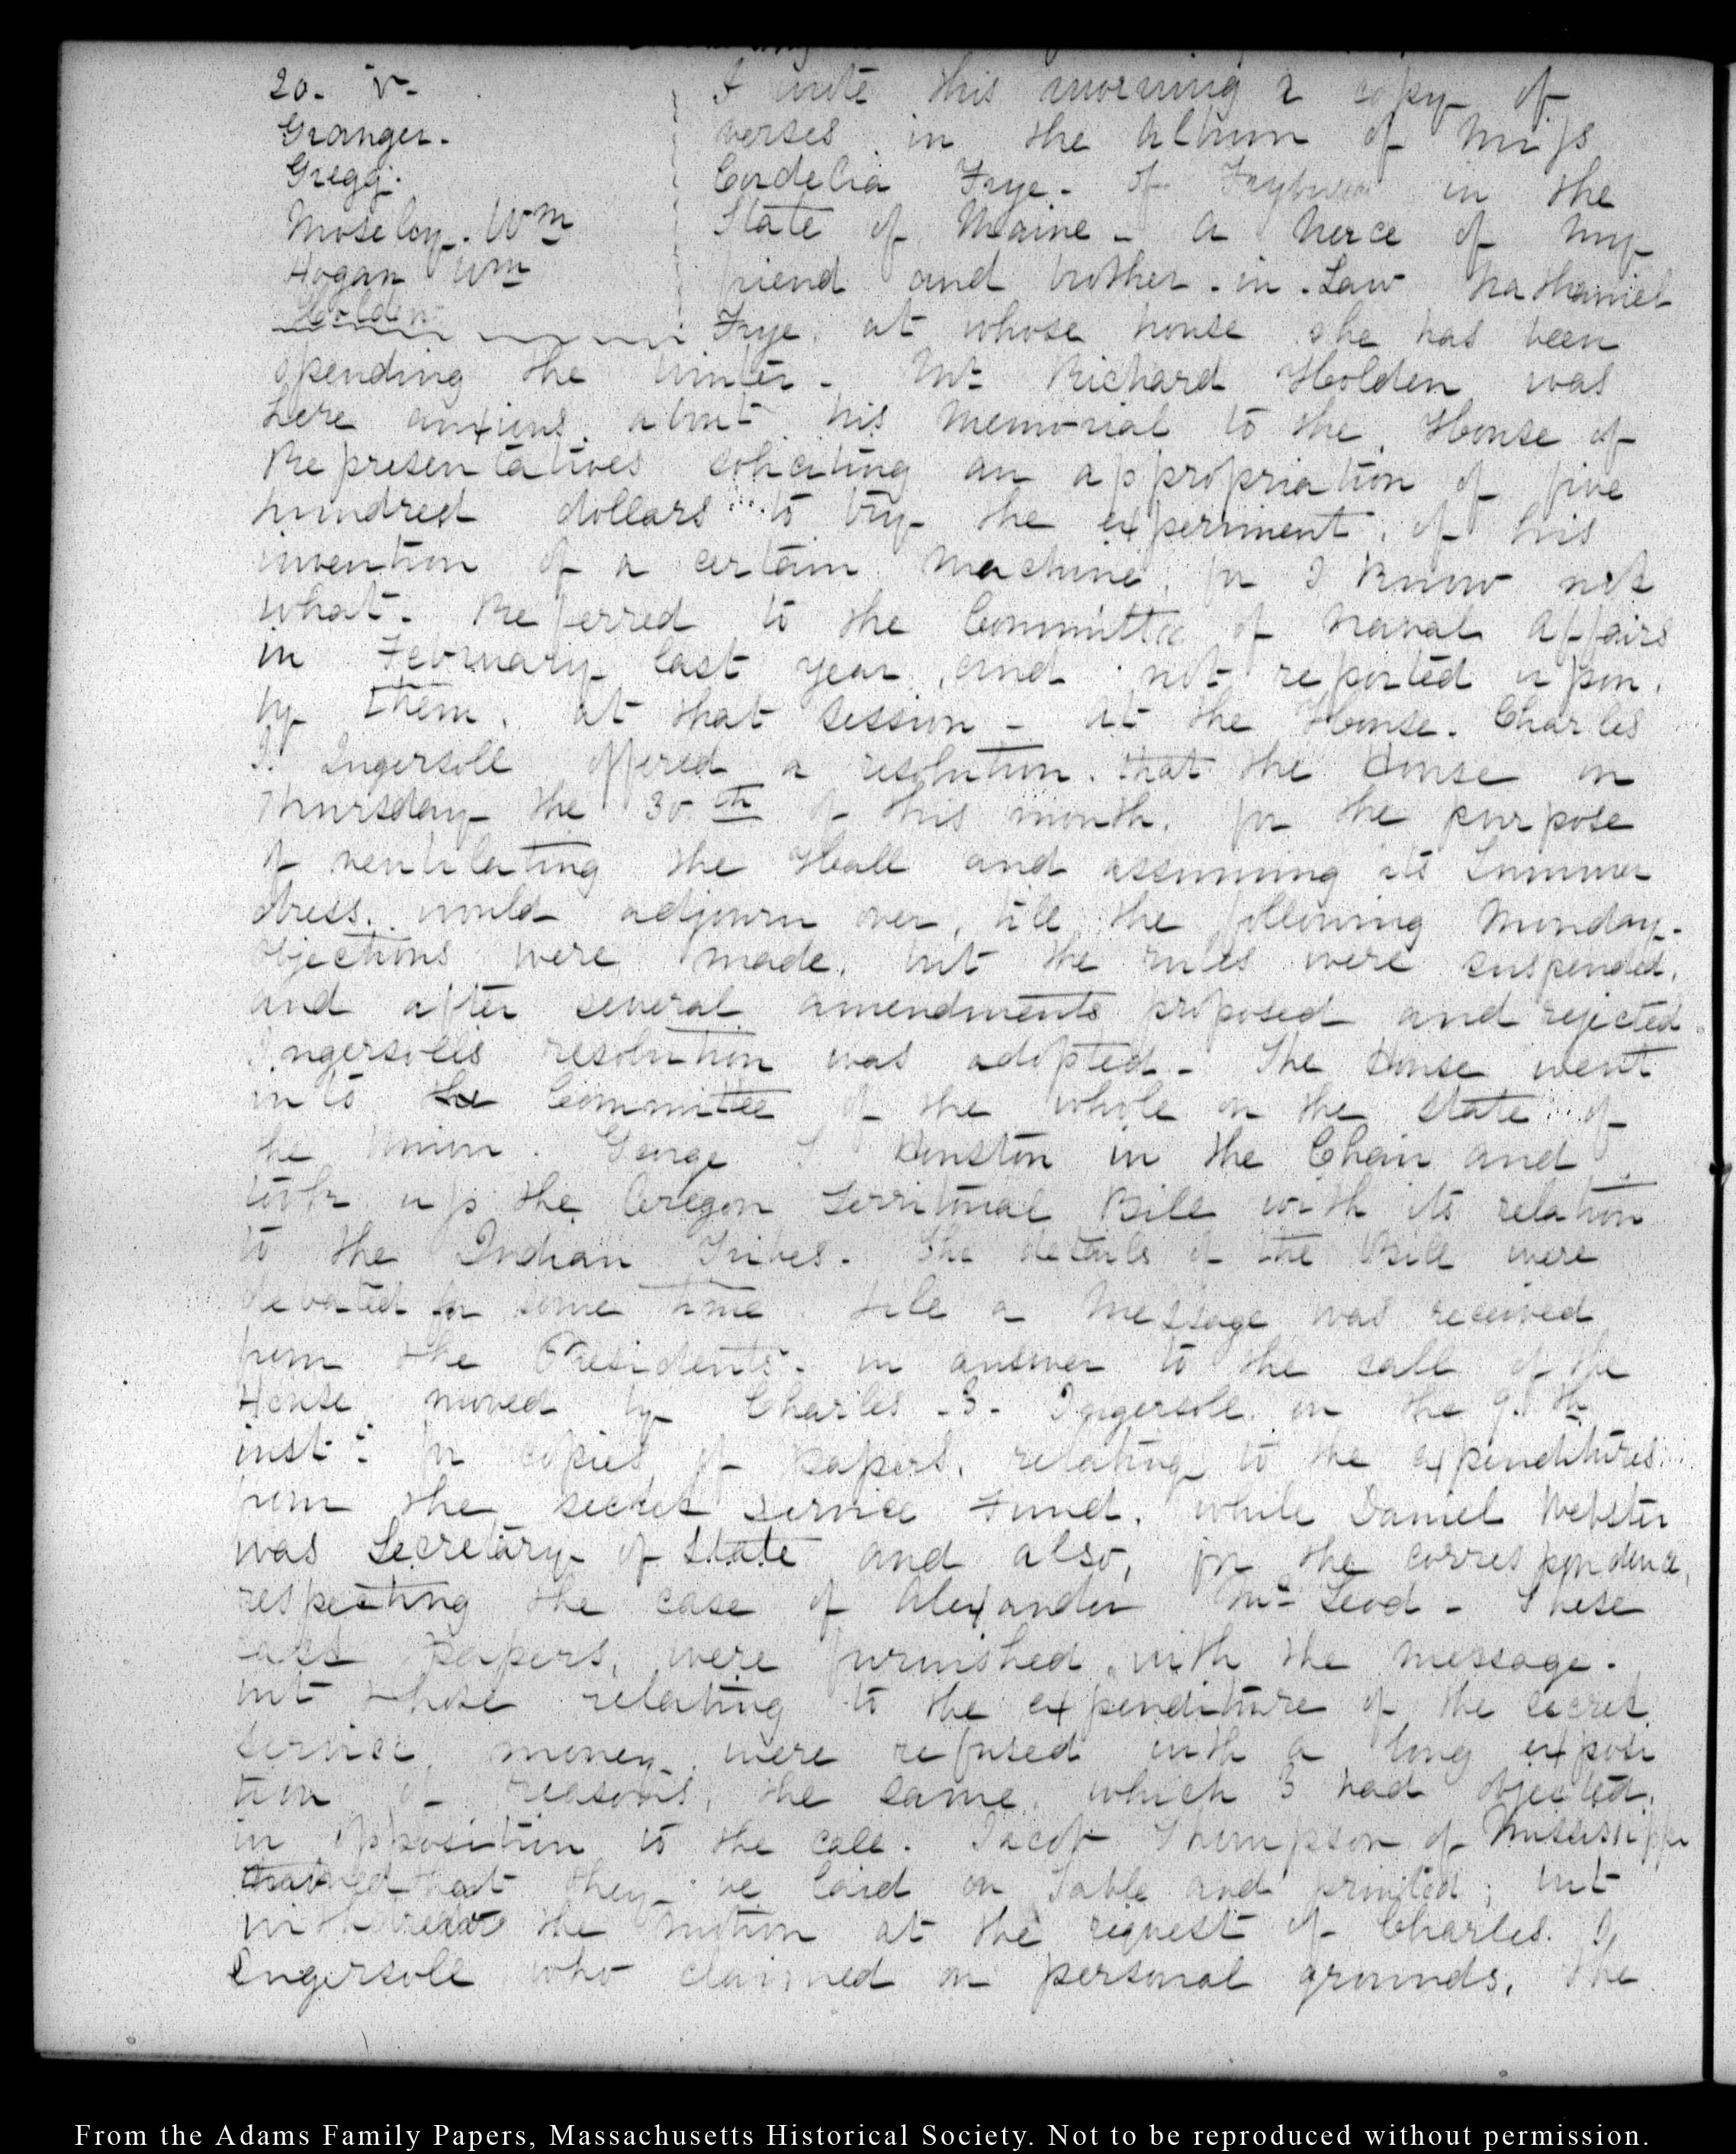 20. V.
Granger.
Gregg.
Moseley. Wm
Hogan Wm
Holden
I write this morning a copy of
verses in the Album of Miss
Cordelia Frye. of in the
State of Maine - a niece of my
friend and brother-in-Law Nathaniel
Frye, at whose house she has been
spending the winter - Mr Richard Holden was
here anxious about his Memorial to the House of
Representatives soliciting an appropriation of five
hundred dollars to try the experiment of his
invention of a certain Machine, for I know not
what. Referred to the Committee of Naval Affairs
in February last year, and not reported upon,
by them, at that session - At the House. Charles
J. Ingersoll offered a resolution. that the House on
Thursday the 30.th of this month, for the purpose
of ventilating the Hall and assuming its Summer
dress, would adjourn over, till the following Monday.
Objections were made, but the rules were suspended,
and after several amendments proposed and rejected
Ingersolls resolution was adopted - The House went
into the Committee of the whole on the state of
the Union. George S Houston in the Chair and
took up the Oregon Territorial Bill with its relation
to the Indian Tribes. The details of the Bill were
debated for some time. till a Message was received
from the Presidents. in answer to the call of the
House moved by Charles J. Ingersoll on the 9.th
inst: for copies of papers, relating to the expenditures
from the secret service Fund, while Daniel Webster
was Secretary of State and also, for the correspondence,
respecting the case of Alexander Mc Leod - These
last papers, were furnished with the message.
but those relating to the expenditure of the secret
service money were refused with a long exposi
tion of reasons, the same, which I had objected,
in opposition to the call. Jacob Thompson of Mississippi
that they be laid on Table and printed; but
withdrew the motion at the request of Charles. J.
Ingersoll who claimed on personal grounds, the
From the Adams Family Papers, Massachusetts Historical Society. Not to be reproduced without permission.